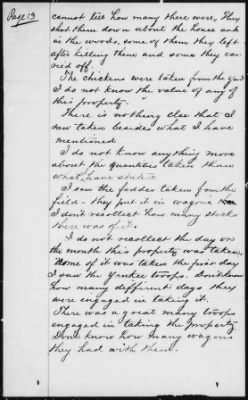 Page 13
cannot tell how many there were, They
shot them down about the house and
in the woods, some of them they left
after killing them and some they car
ried off.
The chickens were taken from the yard
I do not know the value of any of
this property.
There is nothing else that I
saw taken besides what I have
mentioned
I do not know anything more
about the quantities taken than
what I have stated
I saw the fodder taken from the
field - they put it in wagons
I don't recollect how many stacks
there was of it.
I do not recollect the day or
the month this property was taken,
None of it was taken the first day
I saw the Yenkee troops. Dont know
how many different days they
were engaged in taking it.
There was a great many troops
engaged in taking the property
Dont know how many wagons
they had with them.